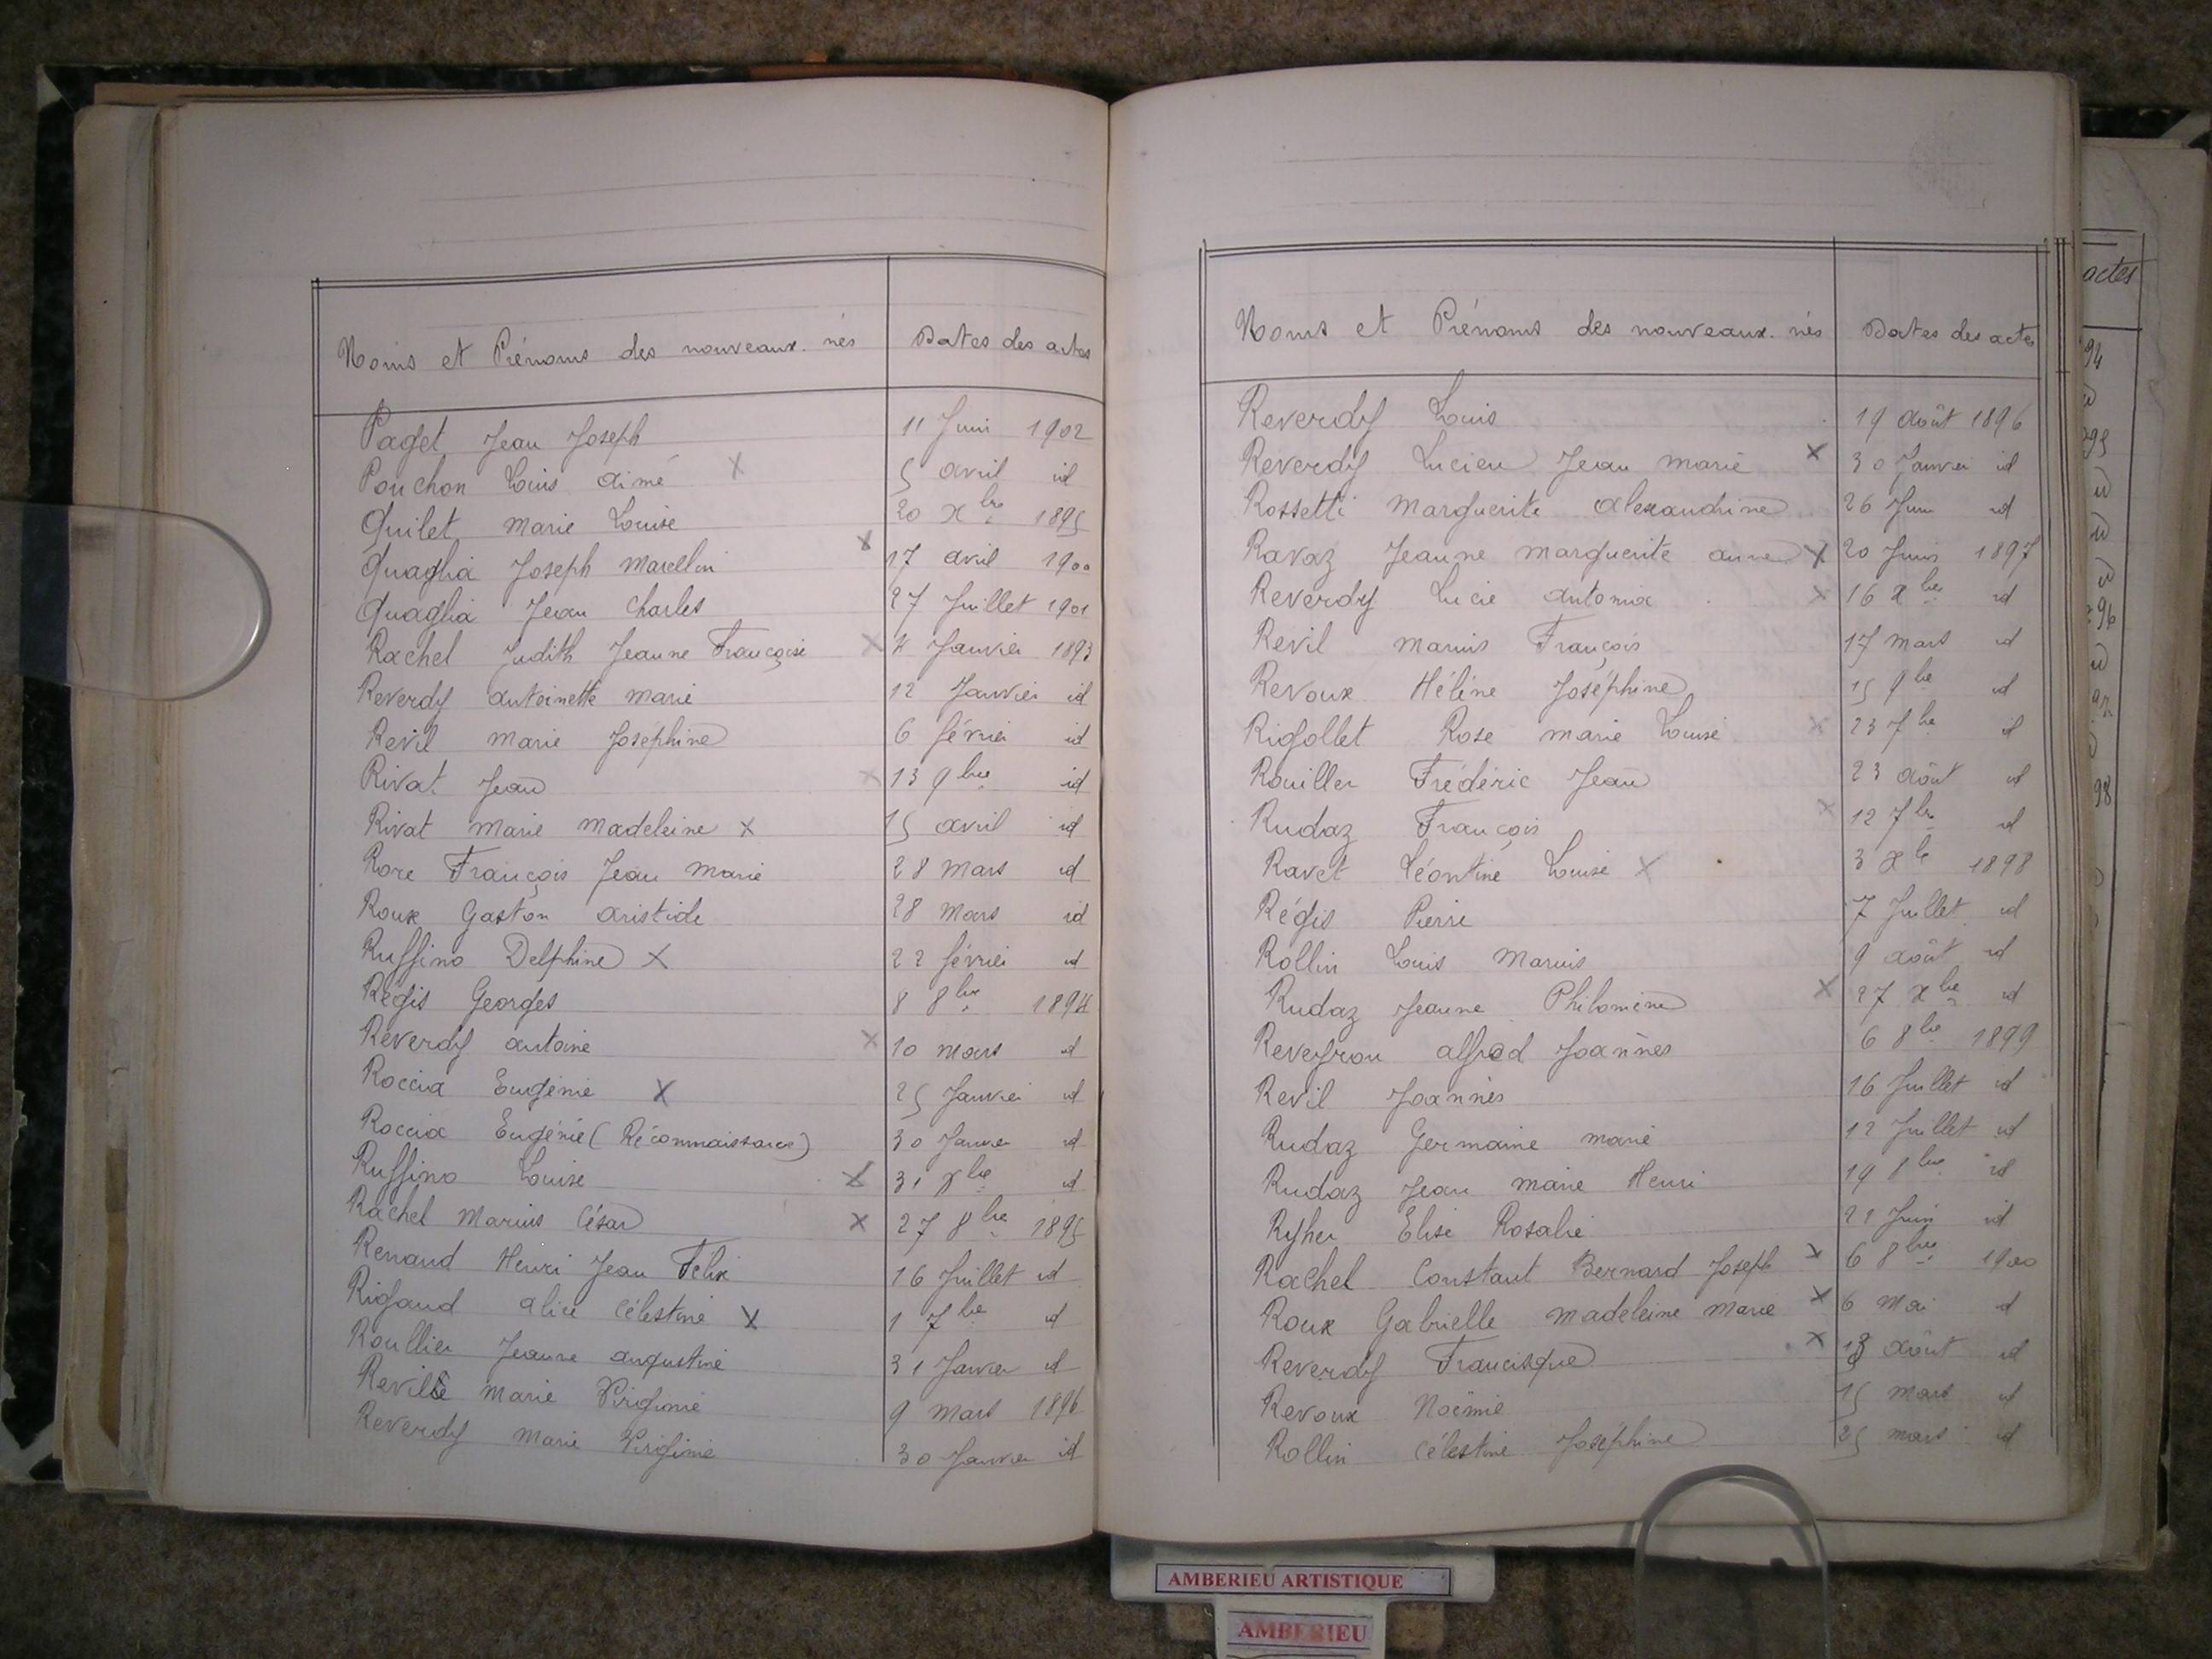 Noms et Prénoms des nouveaux-nés Dates des actes
Paget Jean Joseph 11 Juin 1902
Pouchon Louis aimé X 5 avril id
Quilet marie Louise 20 Xbre 1895
Quaglia Joseph Marcellin X 17 avril 1900
Quaglia Jean Charles 27 Juillet 1901
Rachel Judith Jeanne Françoise X 4 Janvier 1893
Reverdy antoinette marie 12 Janvier id
Revil marie Joséphine 6 février id
Rivat Jean X 13 9bre id
Rivat marie madeleine X 15 avril id
Rore François Jean marie 28 mars id
Roux Gaston aristide 28 mars id
Ruffino Delphine X 22 février id
Régis Georges 8 8bre 1894
Reverdy antoine X 10 mars id
Roccia Eugénie X 25 Janvier id
Roccia Eugénie (Réconnaissance) 30 Janvier id
Ruffino Louise X 31 Xbre id
Rachel Marius César X 27 8bre 1895
Renaud Henri Jean Félix 16 Juillet id
Rigaud alice Célestine X 1 7bre id
Roullier Jeanne augustine 31 Janvier id
marie Virginie 9 mars 1896
Reverdy marie Virginie 30 Janvier id
Noms et Prénoms des nouveaux-nés Dates des actes
Reverdy Louis 19 août 1896
Reverdy Lucien Jean marie X 30 Janvier id
Rossetti marguerite alexandrine 26 Juin id
Ravaz Jeanne marguerite anne X 20 Juin 1897
Reverdy Lucie antonia X 16 Xbre id
Revil marius François 17 mars id
Revoux Hélène Joséphine 15 9bre id
Rigollet Rose marie Louise X 23 7bre id
Rouiller Frédéric Jean 23 août id
Rudaz François X 12 7bre id
Ravet Léontine Louise X 3 Xbre 1898
Régis Pierre 7 Juillet id
Rollin Louis Marius 9 août id
Rudaz Jeanne Philomène X 27 Xbre id
Reveyron alfred Joannès 6 8bre 1899
Revil Joannès 16 Juillet id
Rudaz Germaine marie 12 Juillet id
Rudaz Jean marie Henri 19 8bre id
Ryher Elise Rosalie 21 Juin id
Rachel Constant Bernard Joseph X 6 8bre 1900
Roux Gabrielle madeleine marie X 6 mai id
Reverdy Francisque X 13 août id
Revoux Noémie 15 mars id
Rollin Célestine Joséphine 25 mars id
actes
94
95
96
98
AMBERIEU ARTISTIQUE
AMBERIEU